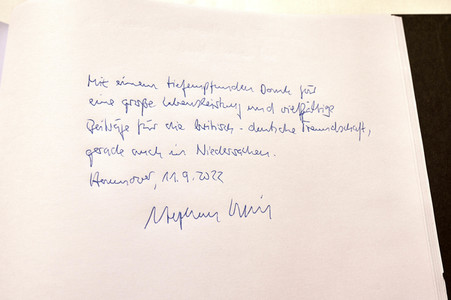 Mit einem tiefempfunden Dank für
eine große Lebensleistung und vielfältige
Beiträge für die britisch-deutsche Freundschaft,
gerade auch in Niedersachsen.
Hannover, 11.9.2022
Stephan Weil